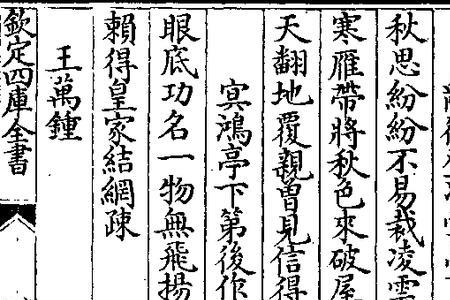 秋思紛紛不易裁凌雲
寒雁帶將秋色來破屋
天翻地覆親曾見信得
冥鴻亭下第後作
眼底功名一物無飛揚
賴得皇家結網疎
王萬鍾
欽定四庫全書